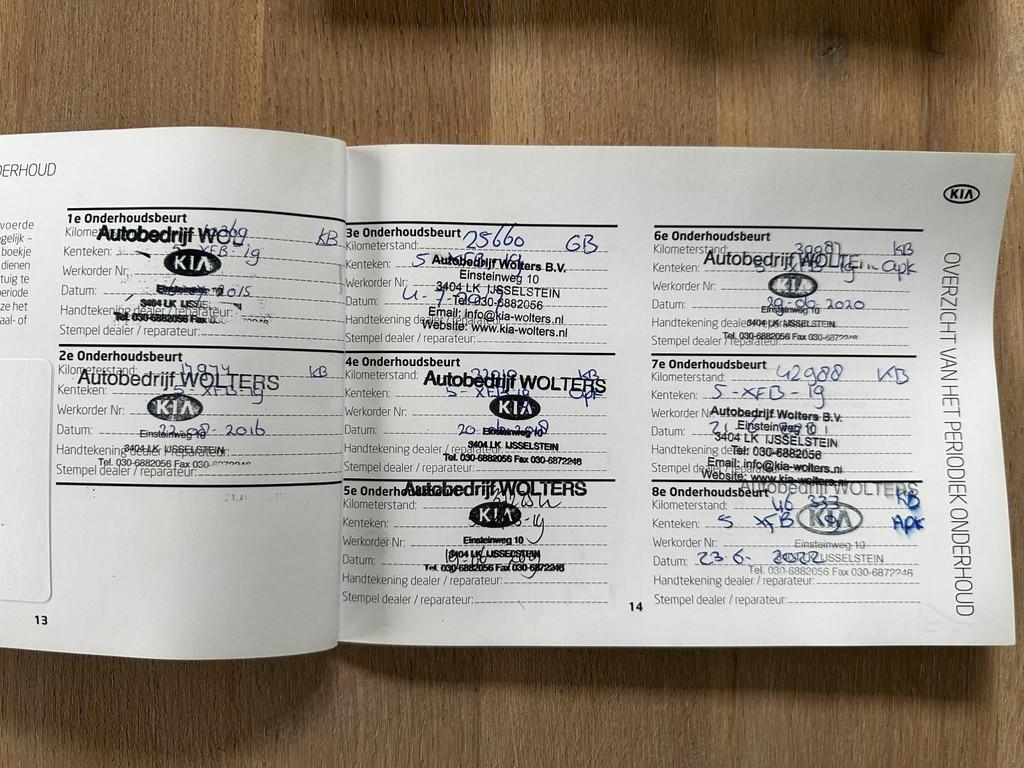 DERHOUD
voerde
gelijk –
boekje
dienen
tuig te
periode
ze het
aal- of
1e Onderhoudsbeurt
KB
Autobedrijf
Kenteken: 5-XFB-19
KIA
Werkorder Nr:
Datum: 2015
3404 LK IJSSE
Tel. 030-6882056 Fax 0
Handtekening dealer / reparateur:
Stempel dealer / reparateur:
2e Onderhoudsbeurt
Kilometerstand: 17974 KB
Autobedrijf WOLTERS
Kenteken: 5-XFB-19
KIA
Werkorder Nr:
Datum: 22-08-2016
Einsteinweg 10
3404 LK IJSSELSTEIN
Handtekening dealer / reparateur:
Tel. 030-6882056 Fax 030-6872246
Stempel dealer / reparateur:
13
3e Onderhoudsbeurt
Kilometerstand: 25660 GB
Kenteken: 5
Autobedrijf Wolters B.V.
Einsteinweg 10
Werkorder Nr:
3404 LK IJSSELSTEIN
Datum:
Tel: 030-6882056
Email: info@kia-wolters.nl
Handtekening dealer / reparateur:
Website: www.kia-wolters.nl
Stempel dealer / reparateur:
4e Onderhoudsbeurt
Kilometerstand: KB
Autobedrijf WOLTERS
Kenteken: 5-XFB-19 Apk
KIA
Werkorder Nr:
Datum: 20 2018
Einsteinweg 10
3404 LK IJSSELSTEIN
Handtekening dealer / reparateur:
Tel. 030-6882056 Fax 030-6872246
Stempel dealer / reparateur:
5e
Autobedrijf WOLTERS
Kilometerstand:
KIA
Kenteken:
Werkorder Nr:
Einsteinweg 10
Datum:
3404 LK IJSSELSTEIN
Tel. 030-6882056 Fax 030-6872246
Handtekening dealer / reparateur:
Stempel dealer / reparateur:
14
KIA
6e Onderhoudsbeurt
Kilometerstand: 39087 KB
Autobedrijf WOLTE
Kenteken: 5-XFB-19 Apk
KIA
Werkorder Nr:
Datum: 29-06-2020
Einsteinweg 10
3404 LK IJSSELSTEIN
Handtekening dealer / reparateur:
Tel. 030-6882056 Fax 030-6872246
Stempel dealer / reparateur:
7e Onderhoudsbeurt
Kilometerstand: 42988 KB
Kenteken: 5-XFB-19
Werkorder Nr:
Autobedrijf Wolters B.V.
Einsteinweg 10
Datum: 21
3404 LK IJSSELSTEIN
Tel: 030-6882056
Handtekening dealer / reparateur:
Email: info@kia-wolters.nl
Stempel dealer / reparateur:
Website: www.kia-wolters.nl
Autobedrijf WOLTERS
8e Onderhoudsbeurt
Kilometerstand: 46 333 KB
KIA
Kenteken: 5 XFB 19 Apk
Werkorder Nr:
Einsteinweg 10
Datum: 23-6-2022
3404 LK IJSSELSTEIN
Tel. 030-6882056 Fax 030-6872246
Handtekening dealer / reparateur:
Stempel dealer / reparateur:
OVERZICHT VAN HET PERIODIEK ONDERHOUD